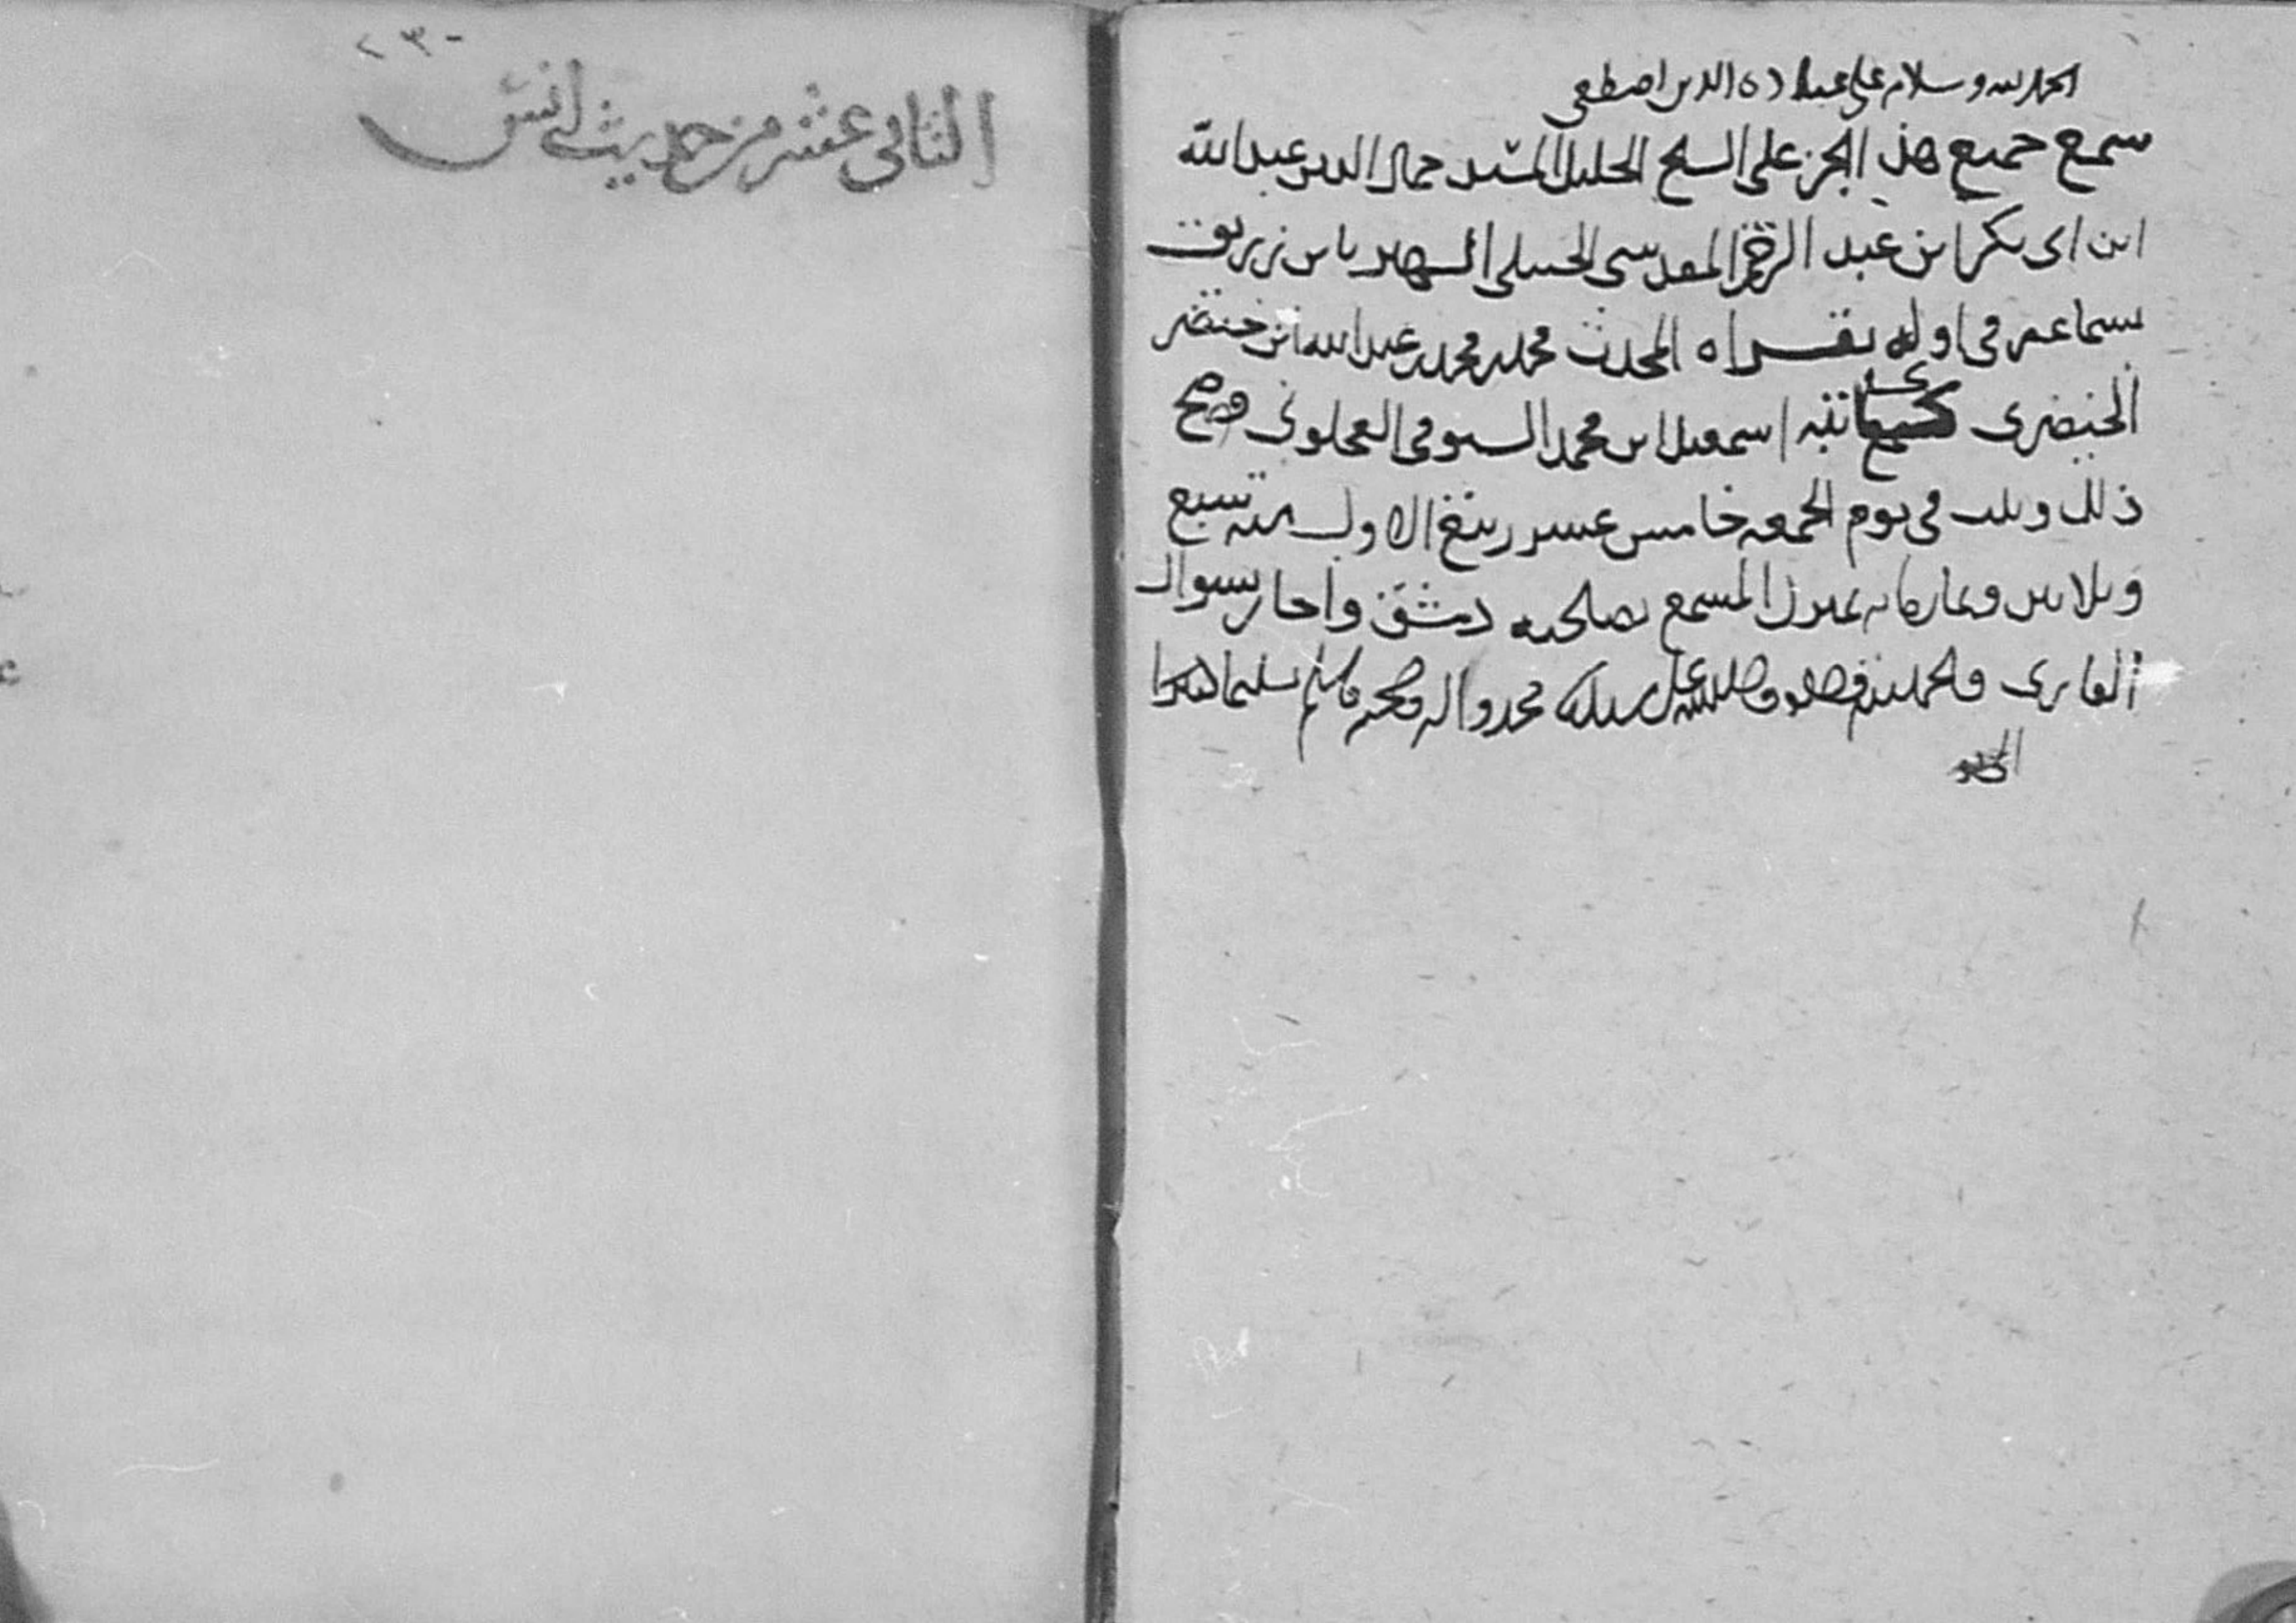 الحمد لله وسلام على عباده الذين اصطفى
سمع جميع هذا الجزء على الشيخ الجليل المسند جمال الدين عبد الله
ابن ابى بكر ابن عبد الرحمن المقدسى الحنبلى الشهير بابن زريق
بسماعه فى اوله بقراءة المحدث محمد بن محمد بن عبد الله ابن خيضر
الخيضرى كاتبه اسمعيل ابن محمد السيوفى العجلونى وصح
ذلك وثبت فى يوم الجمعه خامس عشر ربيع الاول سنة سبع
وثلاثين وثمانمائه بمنزل المسمع بصالحية دمشق واجاز بسوال
القارى والحمد لله وصلى الله على سيدنا محمد واله وصحبه وسلم تسليما كثيرا
٢٣٠
الثانى عشر من حديث انس